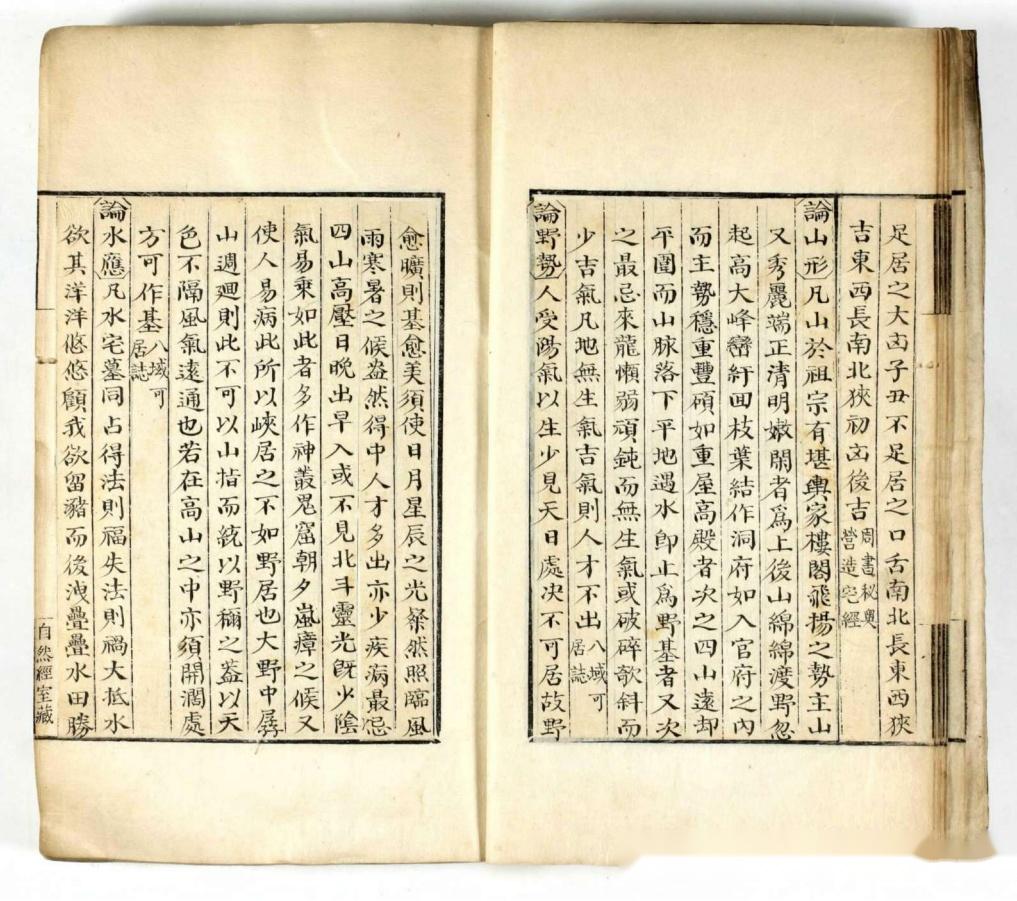 足居之大凶子丑不足居之口舌南北長東西狹
吉東西長南北狹初凶後吉周書秘奧營造宅經
論山形凡山於祖宗有堪輿家樓閣飛揚之勢主山
又秀麗端正清明嫩閒者爲上後山綿綿渡野忽
起高大峰巒紆回枝葉結作洞府如入官府之內
而主勢穩重豐碩如重屋高殿者次之四山遠却
平圍而山脉落下平地遇水卽止爲野基者又次
之最忌來龍懶弱頑鈍而無生氣或破碎欹斜而
少吉氣凡地無生氣吉氣則人才不出八域可居誌
論野勢人受陽氣以生少見天日處決不可居故野
愈曠則基愈美須使日月星辰之光粲然照臨風
雨寒暑之候盎然得中人才多出亦少疾病最忌
四山高壓日晚出早入或不見北斗靈光旣少陰
氣易乘如此者多作神叢鬼窟朝夕嵐瘴之候又
使人易病此所以峽居之不如野居也大野中孱
山週廻則此不可以山指而統以野稱之蓋以天
色不隔風氣遠通也若在高山之中亦須開濶處
方可作基八域可居誌
論水應凡水宅墓同占得法則福失法則禍大抵水
欲其洋洋悠悠顧我欲留豬而後洩疊疊水田勝
自然經室藏